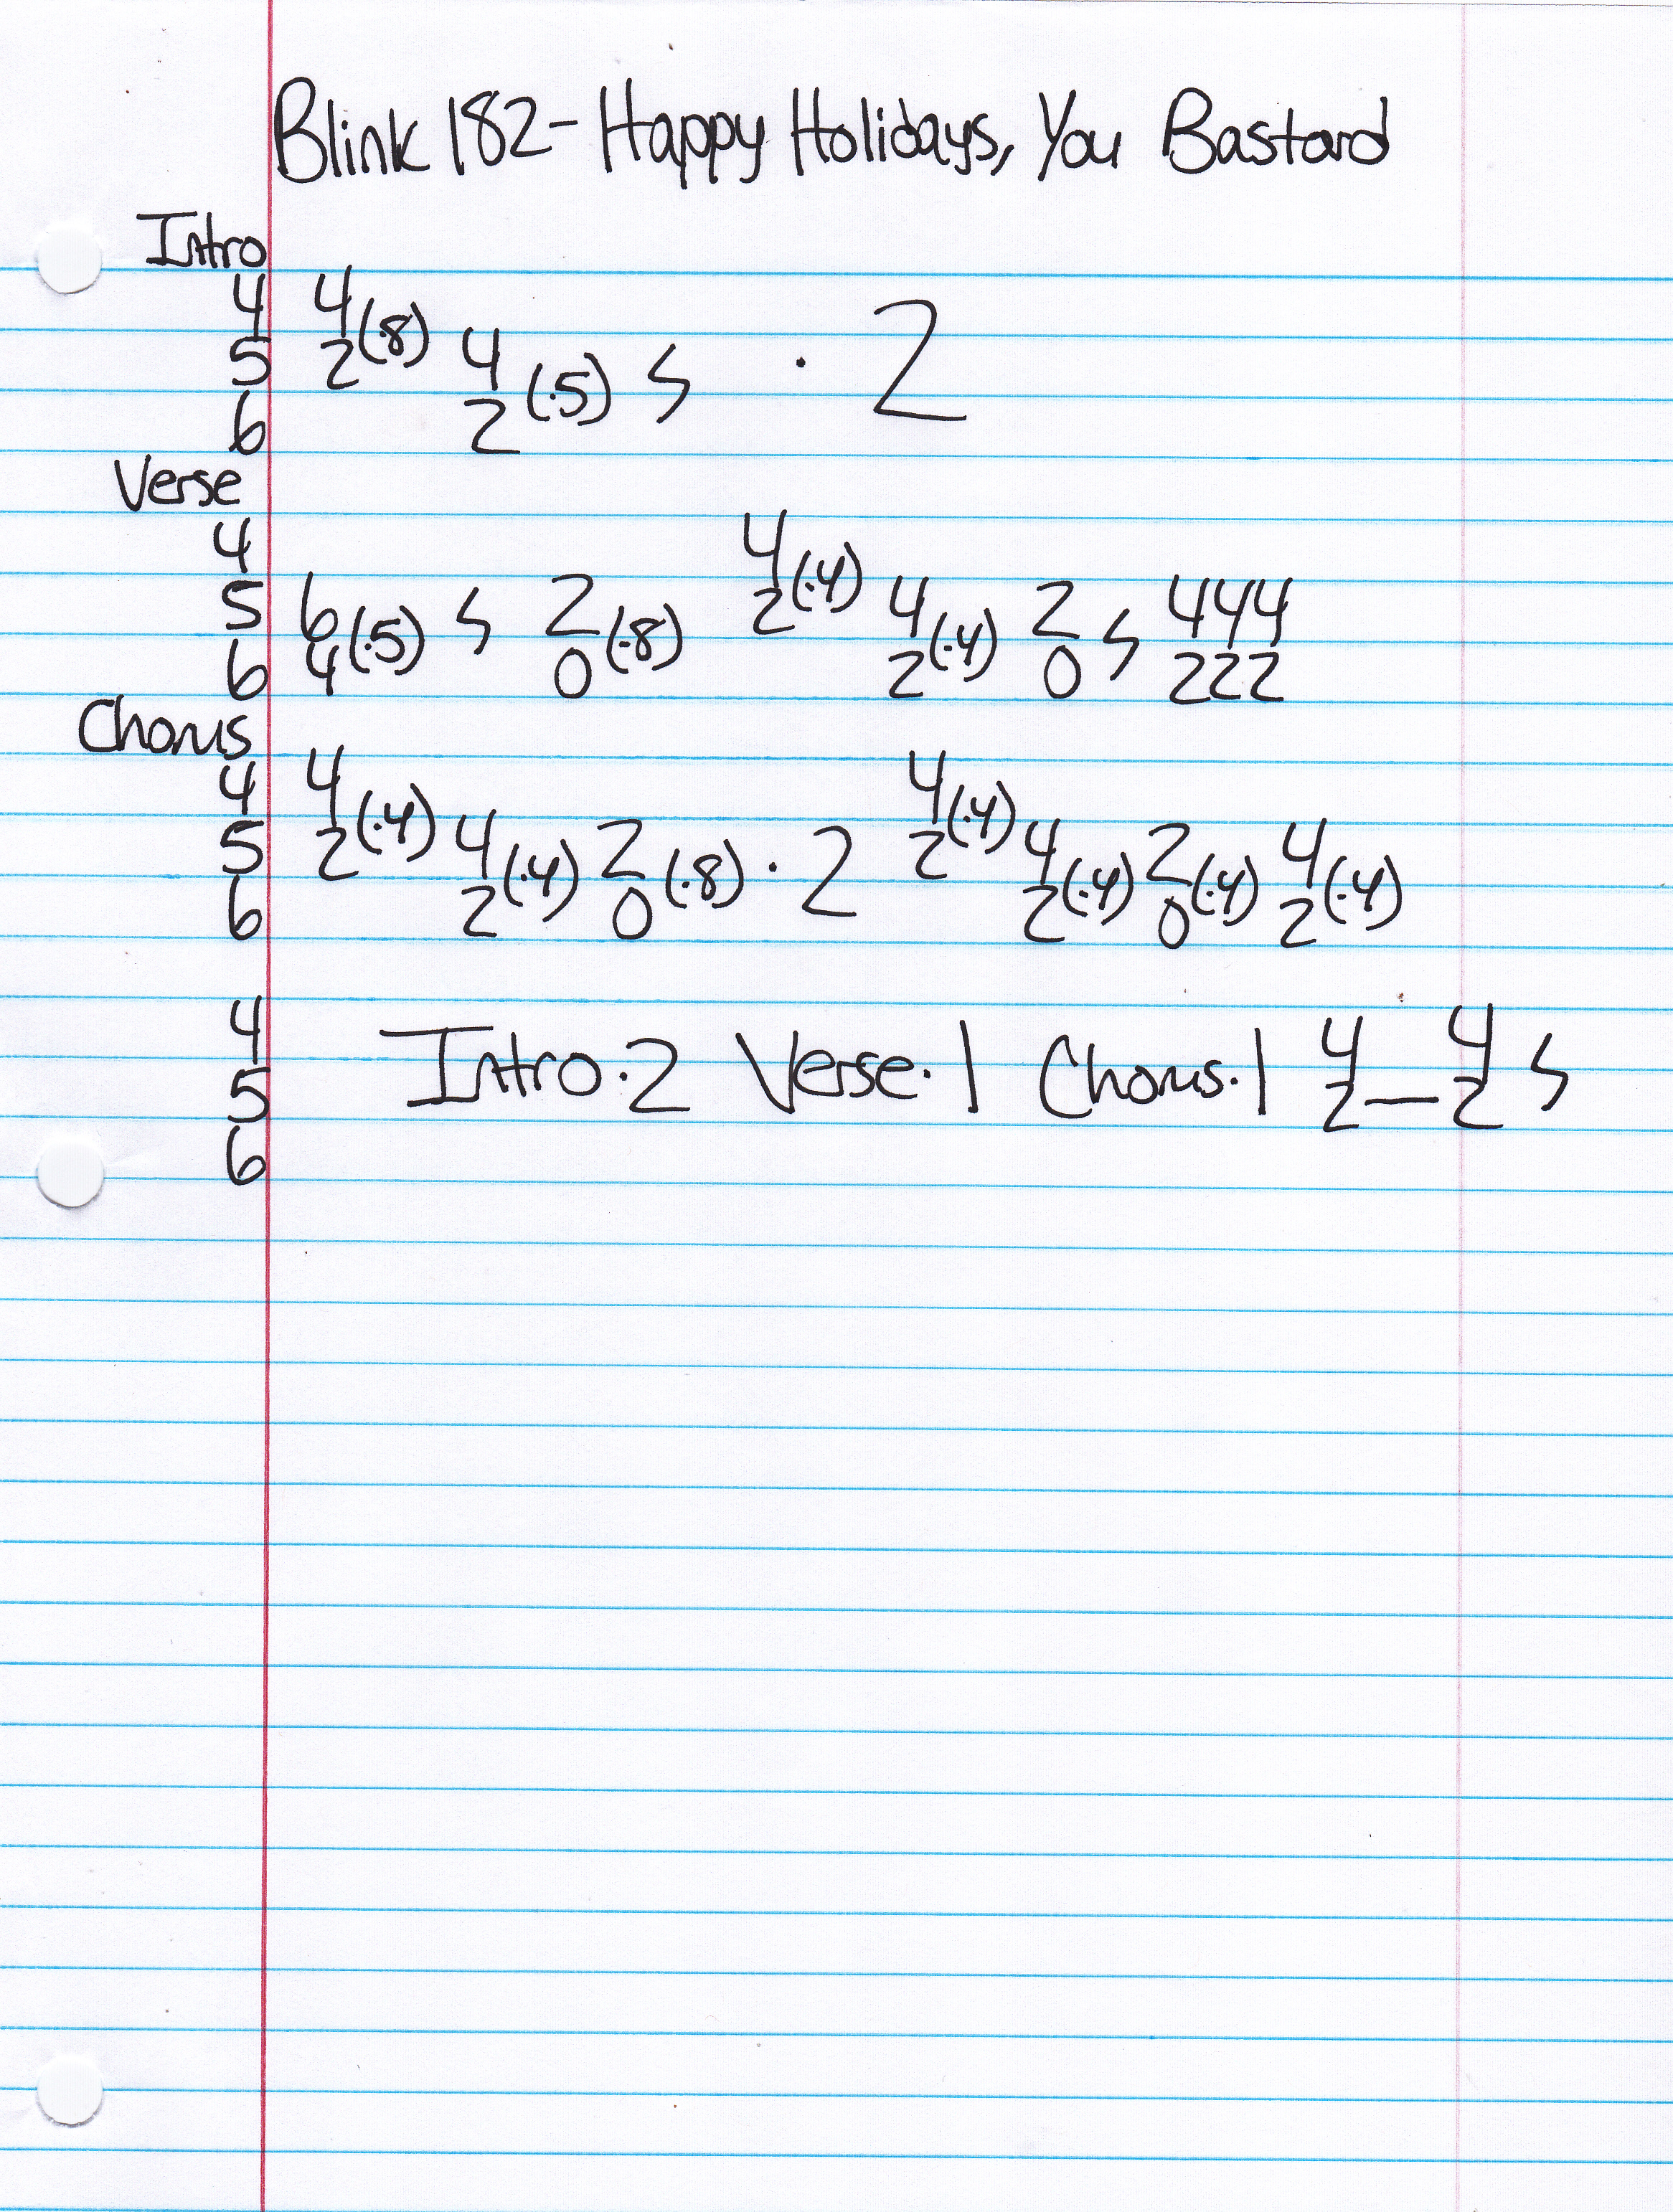 Blink 182- Happy Holidays, You Bastard
Intro
4 4(.8)
5 2 4(.5) ϟ · 2
6 2
Verse
4 4(.4)
5 6(.5) ϟ 2(.8) 2 4(.4) 2 ϟ 444
6 4 0 2 0 222
Chorus
4 4(.4) 4(.4)
5 2 4(.4) 2(.8) · 2 2 4(.4) 2(.4) 4(.4)
6 2 0 2 0 2
4 Intro·2 Verse·1 Chorus·1 4 4 ϟ
5 2_2
6